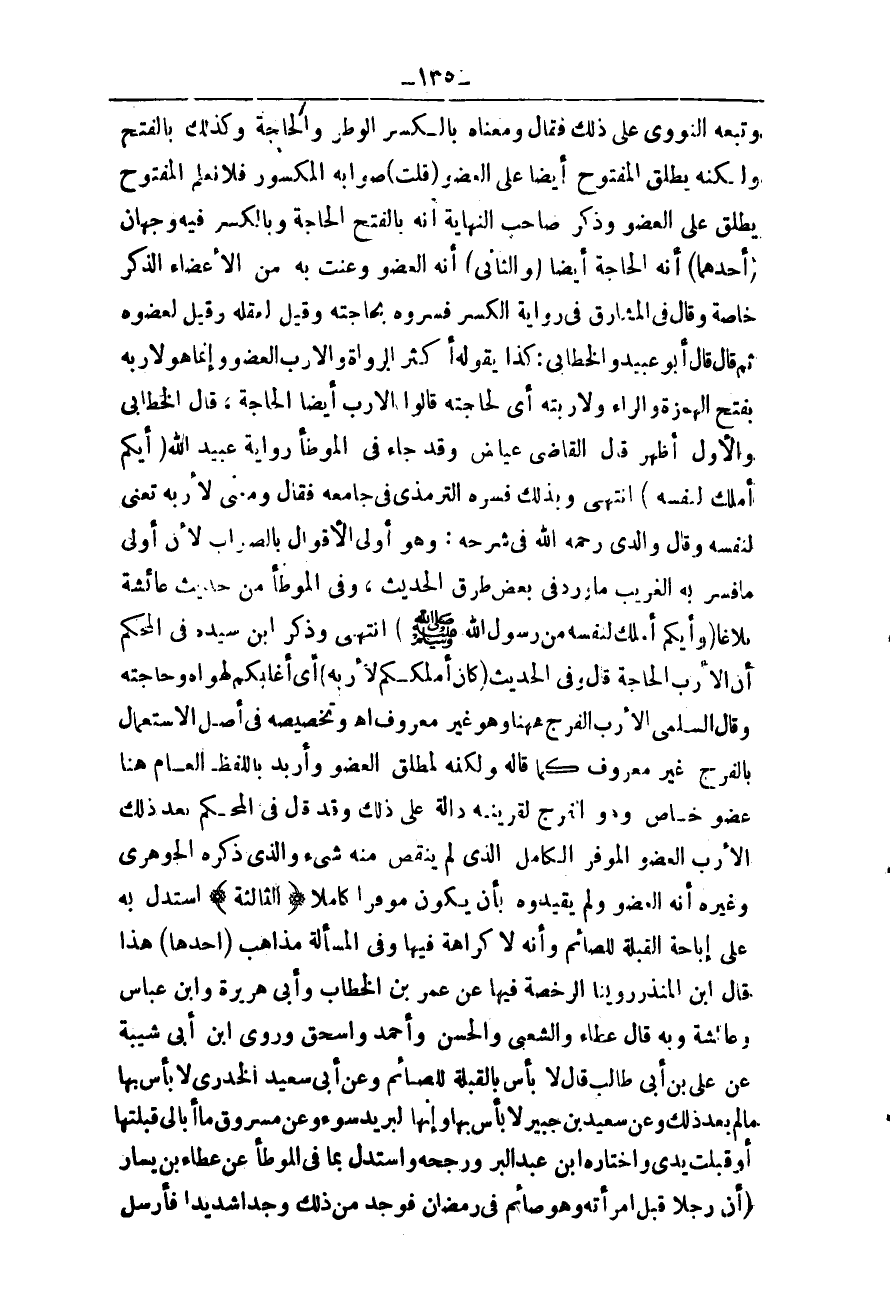 -١٣٥-
وتبعه النووى على ذلك فقال ومعناه بالكسر الوطر والحاجة وكذلك بالفتح
ولكنه يطلق المفتوح أيضا على العضو (قلت) صوابه المكسور فلا نعلم المفتوح
يطلق على العضو وذكر صاحب النهاية أنه بالفتح الحاجة وبالكسر فيه وجهان
(أحدهما) أنه الحاجة أيضا (والثانى) أنه العضو وعنت به من الأعضاء الذكر
خاصة وقال فى المشارق فى رواية الكسر فسروه بحاجته وقيل لعقله وقيل لعضوه
ثم قال قال أبو عبيد والخطابى : كذا يقوله أكثر الرواة والارب العضو وإنما هو لاربه
بفتح الهمزة والراء ولاربته أى لحاجته قالوا الارب أيضا الحاجة ، قال الخطابى
والأول أظهر قال القاضى عياض وقد جاء فى الموطأ رواية عبيد الله (أيكم
أملك لنفسه ) انتهى وبذلك فسره الترمذى فى جامعه فقال ومعنى لأربه تعنى
لنفسه وقال والدى رحمه الله فى شرحه : وهو أولى الأقوال بالصواب لأن أولى
مافسر به الغريب ماورد فى بعض طرق الحديث ، وفى الموطأ من حديث عائشة
بلاغا (وأيكم أملك لنفسه من رسول الله ﷺ ) انتهى وذكر ابن سيده فى المحكم
أن الأرب الحاجة قال وفى الحديث (كان أملككم لأربه) أى أغلبكم لهواه وحاجته
وقال السلمى الأرب الفرج ههنا وهو غير معروف اه وتخصيصه فى أصل الاستعمال
بالفرج غير معروف كما قاله ولكنه لمطلق العضو وأريد باللفظ العام هنا
عضو خاص وهو الفرج لقرينة دالة على ذلك وقد قال فى المحكم بعد ذلك
الأرب العضو الموفر الكامل الذى لم ينقص منه شىء والذى ذكره الجوهرى
وغيره أنه العضو ولم يقيدوه بأن يكون موفرا كاملا ﴿ الثالثة ﴾ استدل به
على إباحة القبلة للصائم وأنه لا كراهة فيها وفى المسألة مذاهب (احدها) هذا
قال ابن المنذر روينا الرخصة فيها عن عمر بن الخطاب وأبى هريرة وابن عباس
وعائشة وبه قال عطاء والشعبى والحسن وأحمد واسحق وروى ابن أبى شيبة
عن على بن أبى طالب قال لا بأس بالقبلة للصائم وعن أبى سعيد الخدرى لا بأس بها
مالم يعد ذلك وعن سعيد بن جبير لا بأس بها وإنها لبريد سوء وعن مسروق ما أبالى قبلتها
أو قبلت يدى واختاره ابن عبد البر ورجحه واستدل بما فى الموطأ عن عطاء بن يسار
(أن رجلا قبل امرأته وهو صائم فى رمضان فوجد من ذلك وجدا شديدا فأرسل